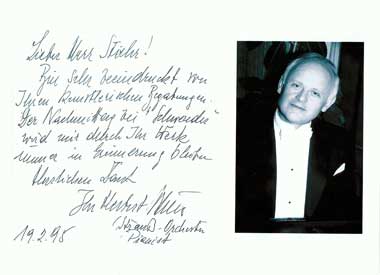 Lieber Herr Stoehr!
Bin sehr beeindruckt von
Ihren künstlerischen Begabungen.
Der Nachmittag bei "Schneider"
wird mir durch Ihr Werk
immer in Erinnerung bleiben
Herzlichen Dank
Ihr Herbert
Orchester
Pianist
19.2.95